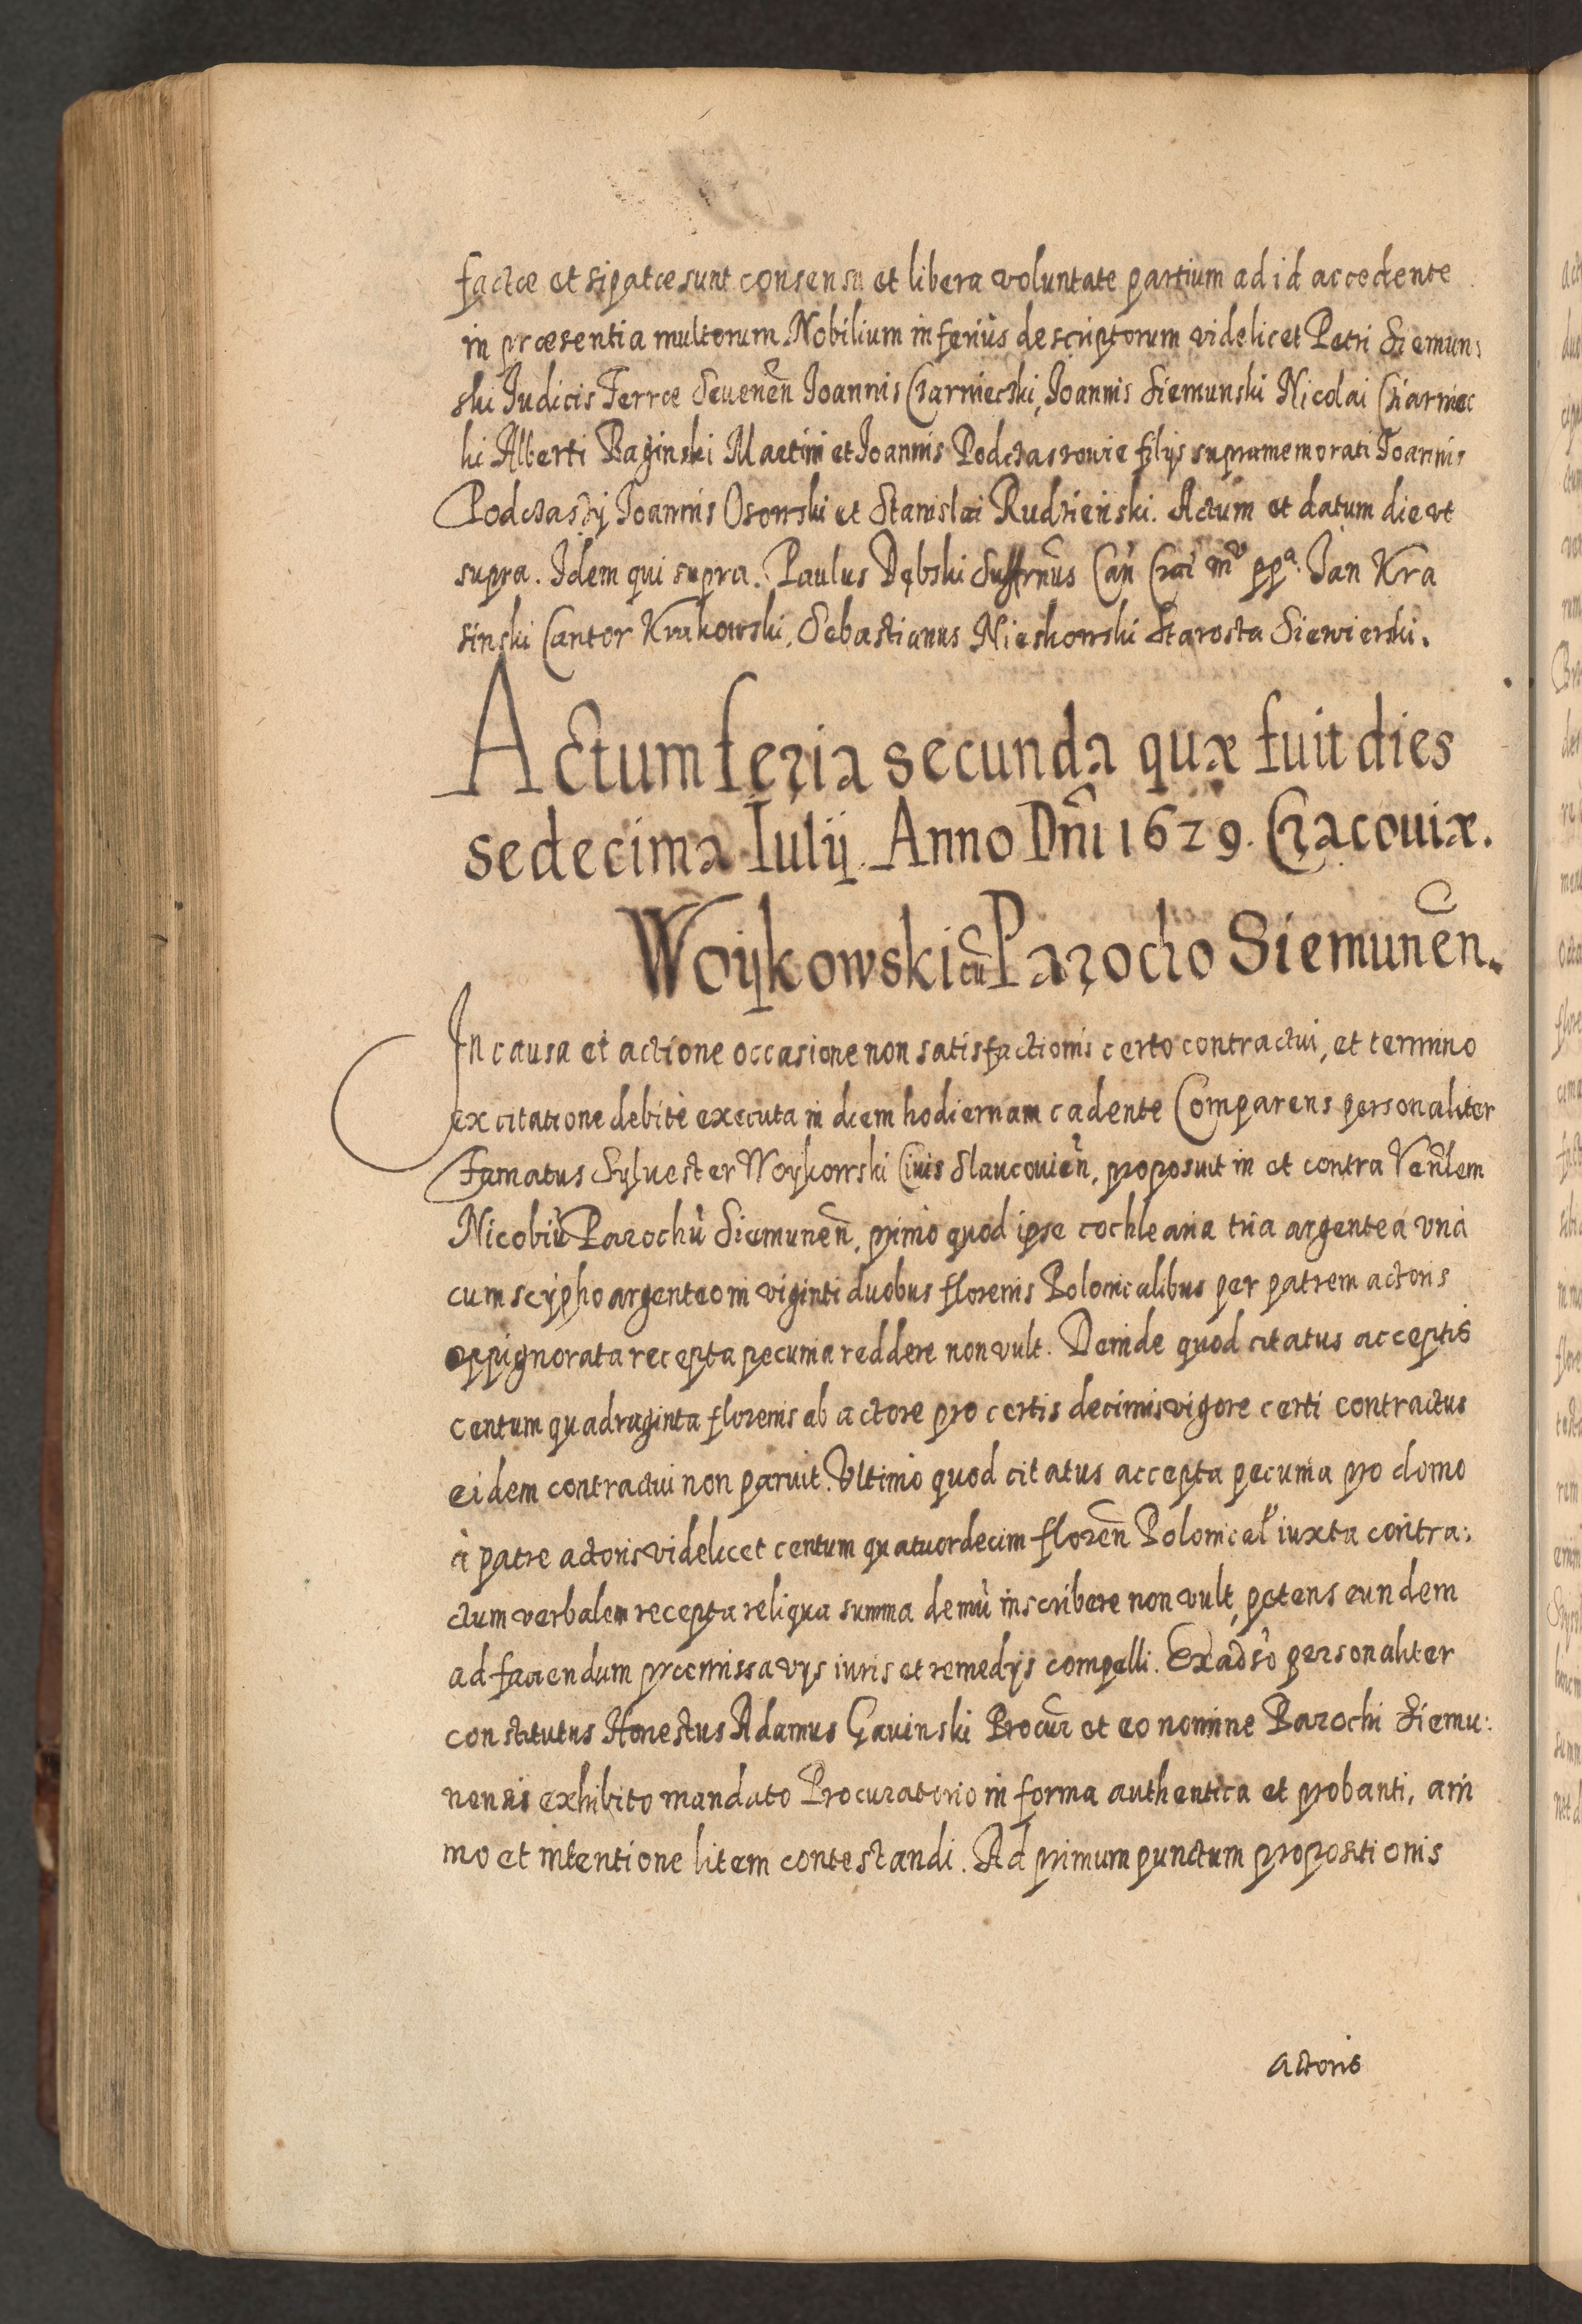 factæ et sipatæ sunt consensu et libera voluntate partium ad id accedente
in præsentia multorum Nobilium inferiùs descriptorum videlicet Petri Siemun:
ski Iudicis Terræ Seuereñ Ioannis Czarniecski, Ioannis Siemunski Nicolai Cziarniec
ki Alberti Baginski Martini et Ioannis Podczaszowie filijs supramemorati Ioannis
Podczaszÿ Ioannis Osowski et Stanislai Rudzieński. Actum et datum die vt
supra. Idem qui supra. Paulus Dębski Suffrñus Cañ mp̃ ppᵃ. Ian Kra
sinski Cantor Krakowski, Sebastianus Nieskowski Starosta Siewierski.
Actum feria secunda quæ fuit dies
sedecima Iulij Anno Dñi 1629. Cracouiæ.
Woÿkowski cũ Parocho Siemuneñ.
In causa et actione occasione non satisfactionis certo contractui, et termino
ex citatione debitè executa in diem hodiernam cadente Comparens personaliter
Famatus Syluester Woÿkowski Ciuis Slaucouieñ, proposuit in et contra Veñlem
Parochũ Siemuneñ, primò quod ipse cochlearia tria argentea vnà
cum scÿpho argenteo in viginti duobus florenis Polonicalibus per patrem actoris
oppignorata recepta pecunia reddere non vult. Deinde quod citatus acceptis
centum quadraginta florenis ab actore pro certis decimis vigore certi contractus
eidem contractui non paruit. Vltimò quod citatus accepta pecunia pro domo
à patre actoris videlicet centum quatuordecim floreñ Polonical' iuxta contra:
ctum verbalem recepta reliqua summa demũ inscribere non vult, petens eundem
ad faciendum præmissa vijs iuris et remedijs compelli. Ex adũso personaliter
constitutus Honestus Adamus Gauinski Procur̃ et eo nomine Parochi Siemu:
nensis exhibito mandato Procuratorio in forma authentica et probanti, ani
mo et intentione litem contestandi. Ad primum punctum propositionis
actoris